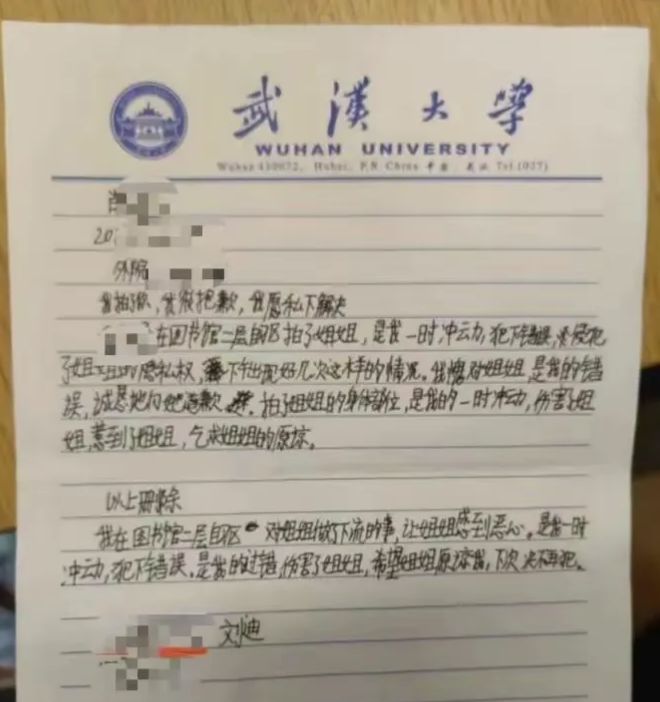 武漢大學
WUHAN UNIVERSITY
Wuhan 430072, Hubei, P.R. China 中国·武汉 Tel.(027)
肖
20
外院
我拍了你,我很抱歉,我愿私下解决
在图书馆二层自区拍了姐姐,是我一时冲动,犯下错误,侵犯
了姐姐的隐私权,下午出现好几次这样的情况。我愧对姐姐,是我的错
误,诚恳地向她道歉,拍了姐姐的身体部位,是我的一时冲动,伤害了姐
姐,惹到了姐姐,乞求姐姐的原谅。
以上删除
我在图书馆二层自区对姐姐做了下流的事,让姐姐感到恶心。是我一时
冲动,犯下错误。是我的过错,伤害了姐姐,希望姐姐原谅我,下次决不再犯。